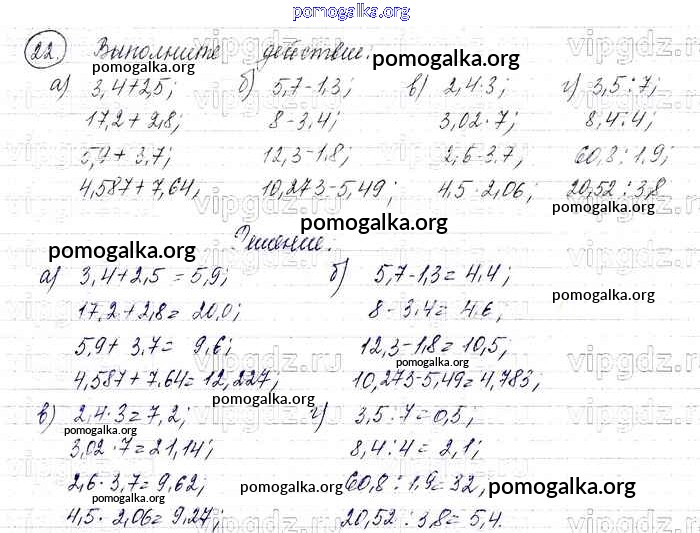 pomogalka.org
22. Выполните действие: pomogalka.org
pomogalka.org
а) 3,4+2,5; б) 5,7-1,3; в) 2,4·3; г) 3,5:7;
17,2+2,8; 8-3,4; 3,02·7; 8,4:4;
5,9+3,7; 12,3-1,8; 2,6·3,7; 60,8:1,9;
4,587+7,64; 10,273-5,49; 4,5·2,06; 20,52:3,8
pomogalka.org
pomogalka.org
Решение.
pomogalka.org
а) 3,4+2,5=5,9; б) 5,7-1,3=4,4;
pomogalka.org
17,2+2,8=20,0; 8-3,4=4,6;
5,9+3,7=9,6; 12,3-1,8=10,5;
pomogalka.org
4,587+7,64=12,227; 10,273-5,49=4,783;
pomogalka.org
в) 2,4·3=7,2; г) 3,5:7=0,5;
pomogalka.org
3,02·7=21,14; 8,4:4=2,1;
2,6·3,7=9,62; 60,8:1,9=32,
pomogalka.org pomogalka.org pomogalka.org
4,5·2,06=9,27; 20,52:3,8=5,4.